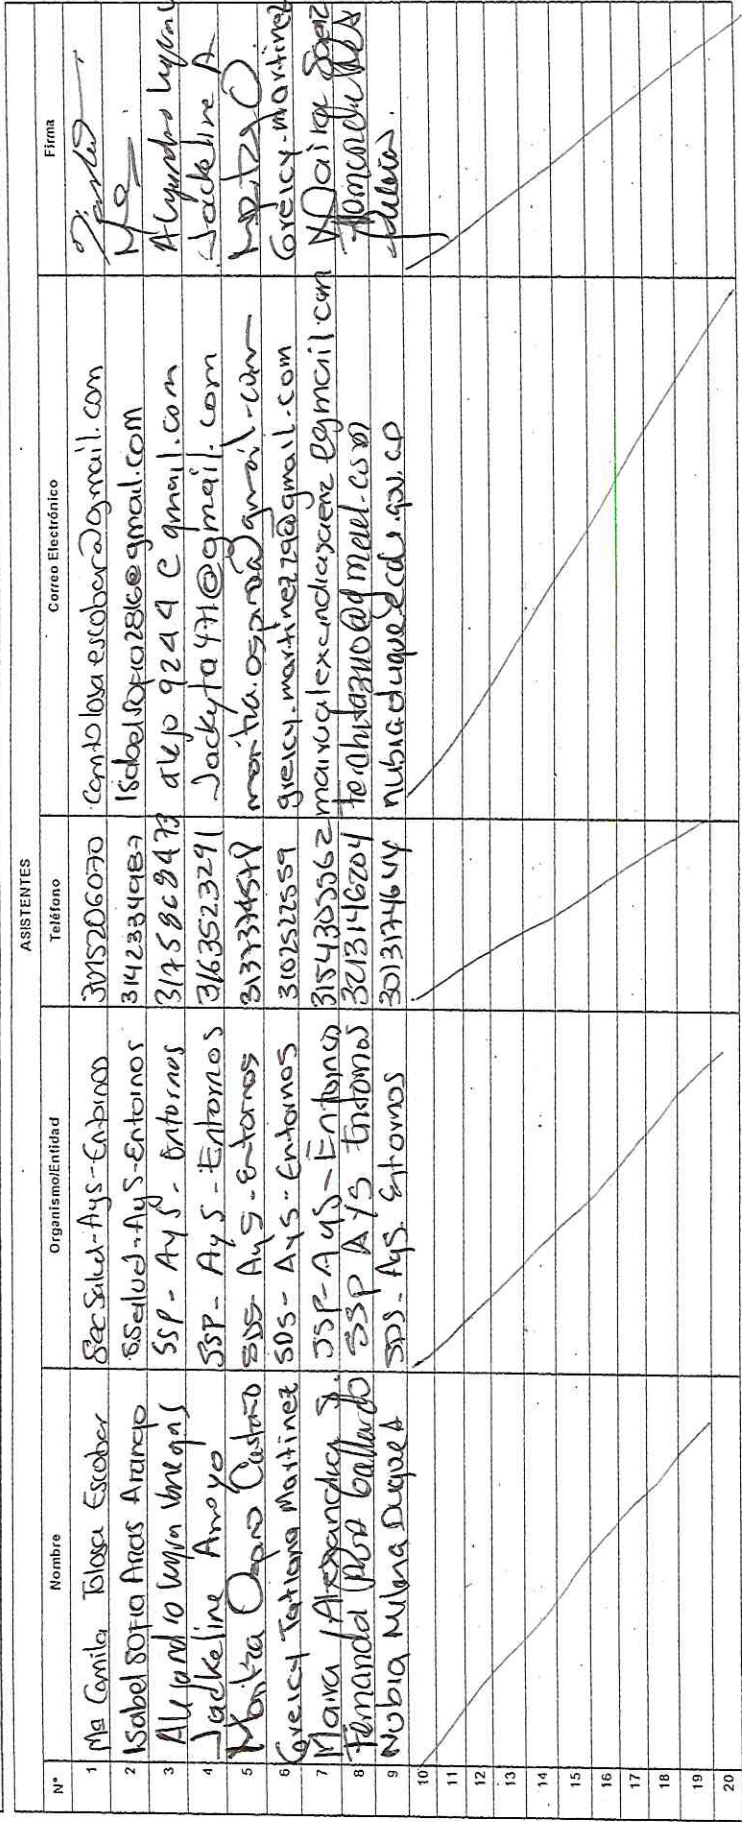 ASISTENTES
N° Nombre Organismo/Entidad Teléfono Correo Electrónico Firma
1 Ma Camila Tolosa Escobar Sec Salud-AyS-Entornos 3015206070 Camtolosaescobar@gmail.com
2 Isabel Sofia Arias Arango S.Salud-AyS-Entornos 3142334983 Isabelsofia2816@gmail.com
3 Alejandro SSP- AyS- Entornos 3175868473 alejo9244@gmail.com
4 Jackeline Arroyo SSP- AyS- Entornos 3163523291 Jackyta471@gmail.com Jackeline A
5 Maritza Ospino Castaño SDS- AyS- Entornos maritza.ospina@gmail.com
6 Greicy Tatiana Martinez SDS- AyS- Entornos 3102522559 greicy.martinez29@gmail.com Greicy-martinez
7 Maira Alexandra S. SSP-AyS-Entornos 3154305562 mairaalexandrasaenz@gmail.com Maira Saenz
8 Fernanda Gallardo SSP AyS Entornos 3213146204
9 Nubia Milena Duque A SDS- AyS. Entornos 3013174644
10
11
12
13
14
15
16
17
18
19
20